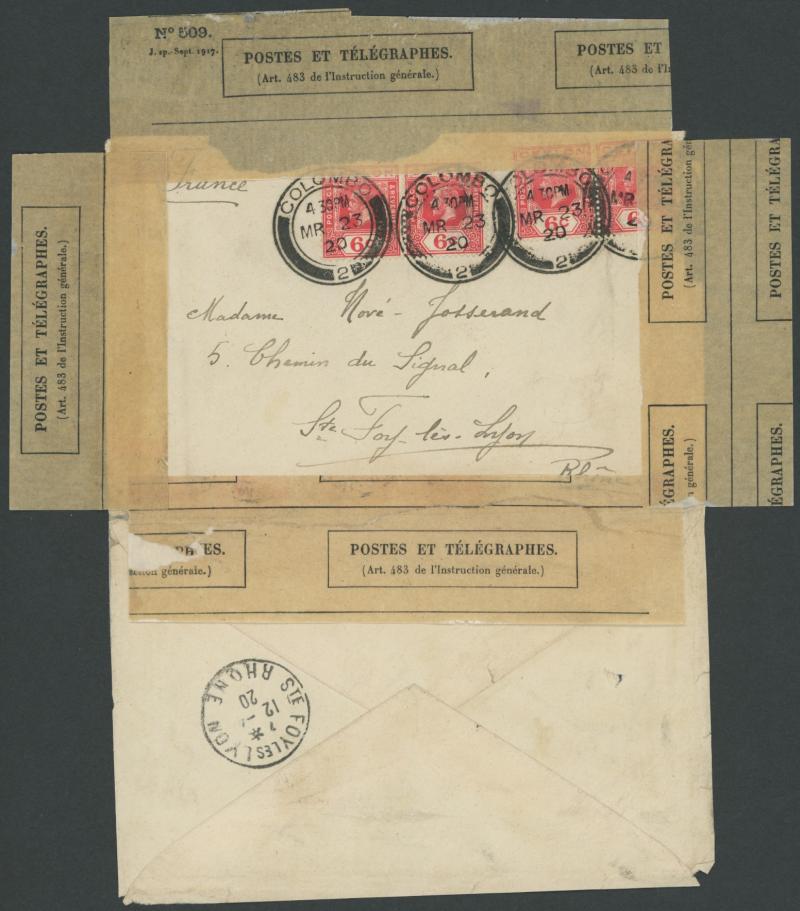 Nº 509.
J. ep.-Sept. 1917.
POSTES ET TÉLÉGRAPHES.
(Art. 483 de l'Instruction générale.)
POSTES ET
(Art. 483 de l'In
France
COLOMBO
4 30PM
MR 23
20
2
6c
COLOMBO
4 30PM
MR 23
20
2
6c
CEYLON
COLOMBO
4 30PM
MR 23
20
2
6c
4
MR
2
6
Madame Nové-Josserand
5. Chemin du Signal,
Ste Foy-lès-Lyon
POSTES ET TÉLÉGRAPHES.
(Art. 483 de l'Instruction générale.)
POSTES ET TÉLÉGRA
(Art. 483 de l'Instruction gén
POSTES ET TÉLÉGRA
ÉGRAPHES.
générale.)
ÉGRAPHES.
PHES.
générale.)
POSTES ET TÉLÉGRAPHES.
(Art. 483 de l'Instruction générale.)
STE FOY LES LYON
RHONE
12
20